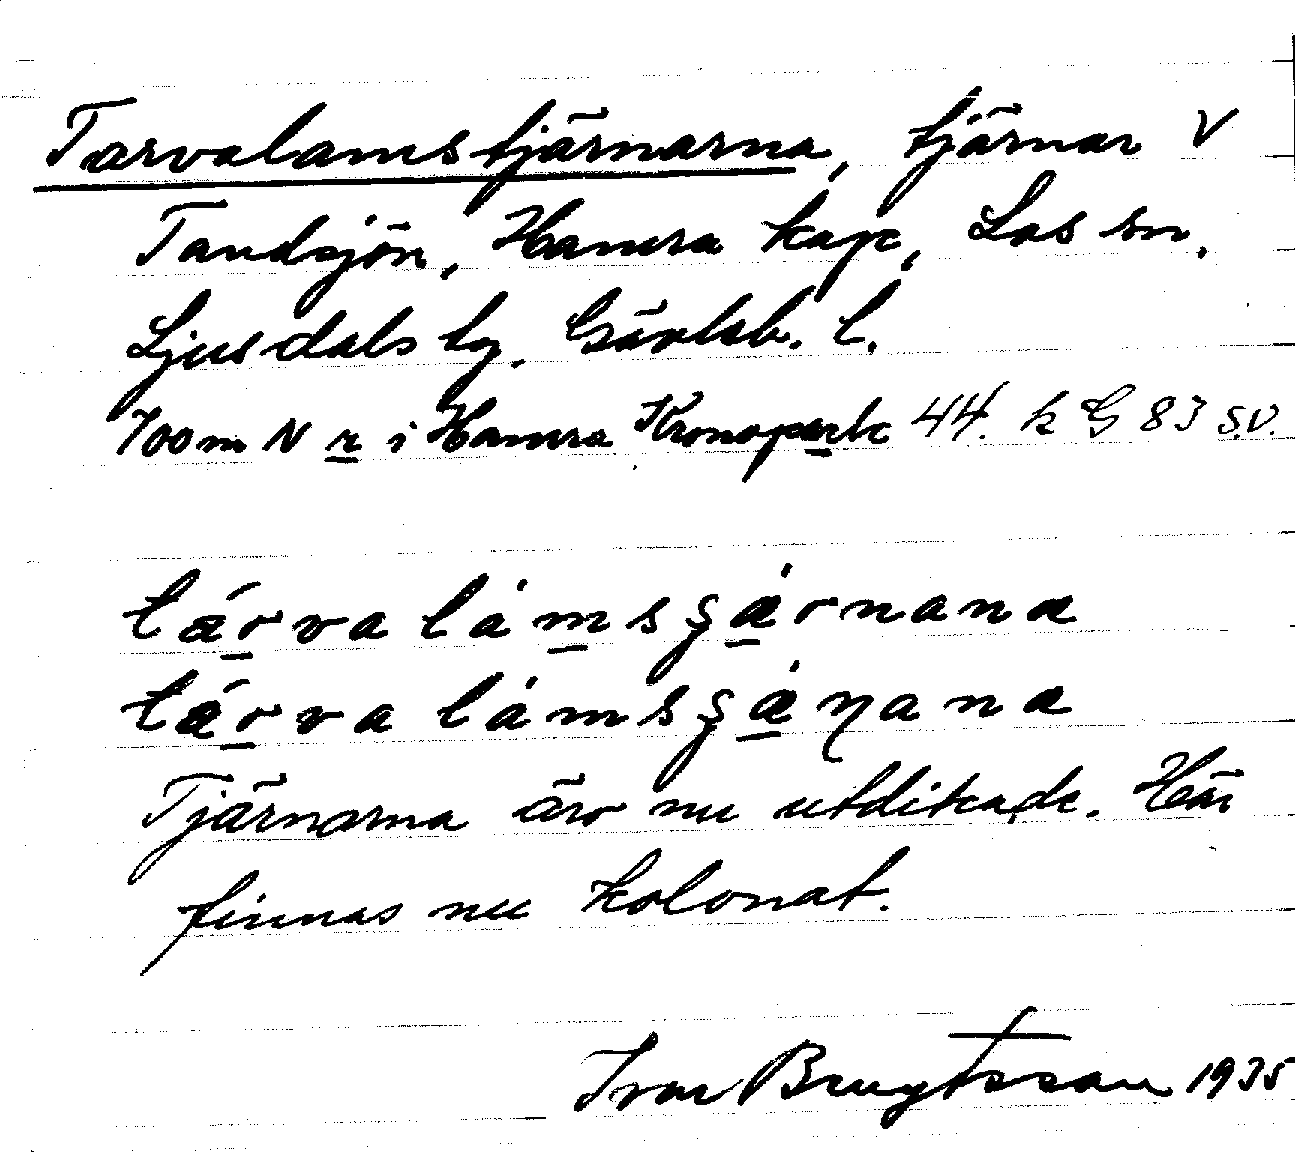 Tarvalamstjärnarna, tjärnar V
Tandsjön, Hamra kap, Los sn,
Ljusdals tg. Gävleb. l.
700 m N r i Hamra Kronopark 44. k G 83 S.V.
tárva lámsşárnana
tárva lámsşáṇana
Tjärnarna äro nu utdikade. Här
finnas nu kolonat.
Ivar Bengtsson 1935